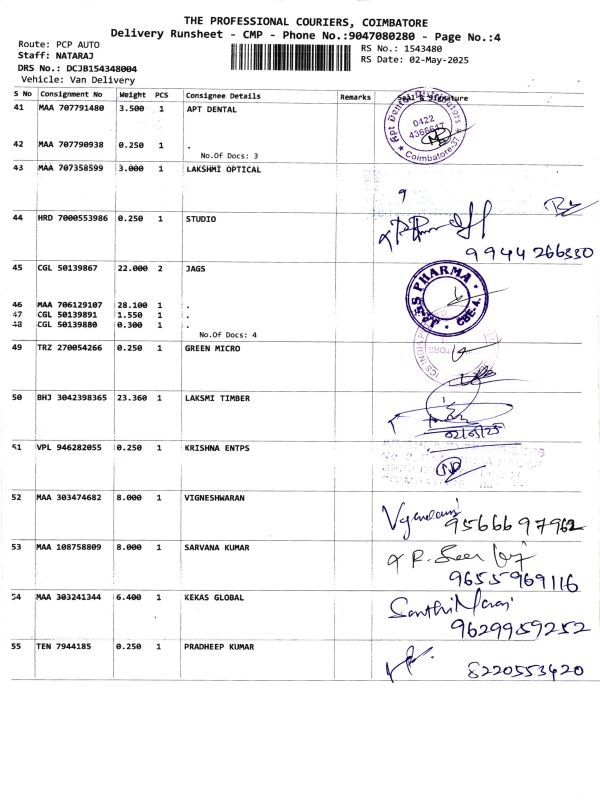 THE PROFESSIONAL COURIERS, COIMBATORE
Delivery Runsheet - CMP - Phone No.:9047080280 - Page No.:4
Route: PCP AUTO
RS No.: 1543480
Staff: NATARAJ
RS Date: 02-May-2025
DRS No.: DCJB154348004
Vehicle: Van Delivery
S No Consignment No Weight PCS Consignee Details Remarks Seal & Signature
41 MAA 707791480 3.500 1 APT DENTAL
Apt Dental
0422
Coimbatore-37
42 MAA 707790938 0.250 1 .
No.Of Docs: 3
43 MAA 707358599 3.000 1 LAKSHMI OPTICAL
9
44 HRD 7000553986 0.250 1 STUDIO
9944266330
45 CGL 50139867 22.000 2 JAGS
JAGS PHARMA
CBE-4.
46 MAA 706129107 28.100 1 .
47 CGL 50139891 1.550 1 .
48 CGL 50139880 0.300 1 .
No.Of Docs: 4
49 TRZ 270054266 0.250 1 GREEN MICRO
50 BHJ 3042398365 23.360 1 LAKSMI TIMBER
02/05/25
51 VPL 946282055 0.250 1 KRISHNA ENTPS
52 MAA 303474682 8.000 1 VIGNESHWARAN
9566697962
53 MAA 108758809 8.000 1 SARVANA KUMAR
9655969116
54 MAA 303241344 6.400 1 KEKAS GLOBAL
9629959252
55 TEN 7944185 0.250 1 PRADHEEP KUMAR
8220553420